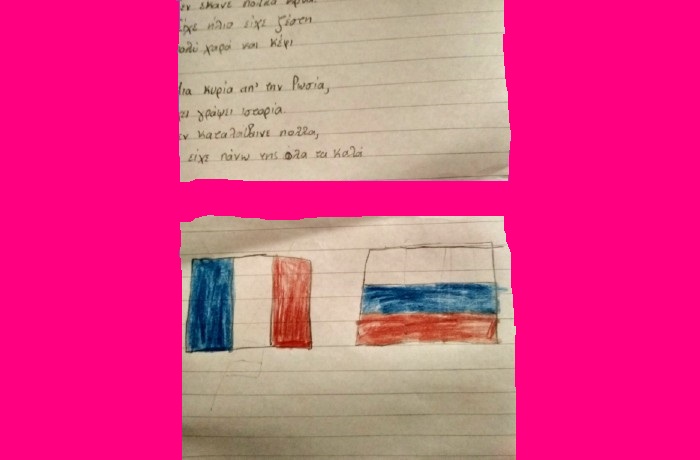 εν έκανε πολλά
είχε ήλιο είχε ζέστη
πολύ χαρά και κέφι
ια κυρία απ' την Ρωσία,
ει γράψει ιστορία
εν καταλάβαινε πολλά,
είχε πάνω της όλα τα καλά